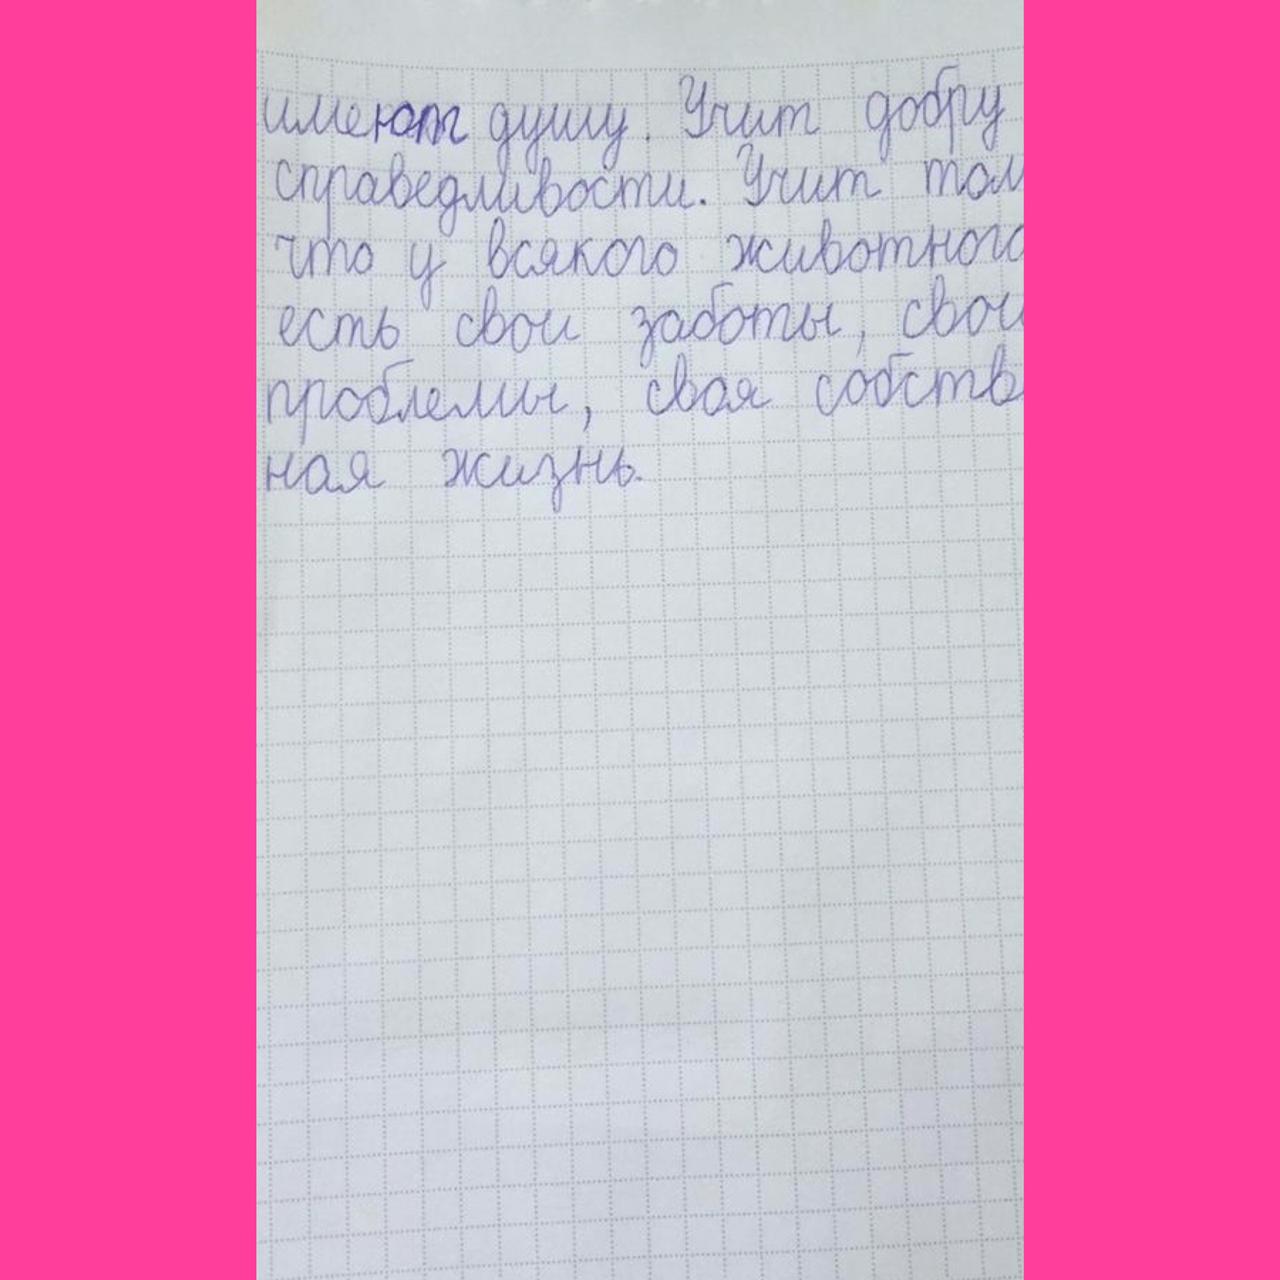 имеют душу. Учит добру
справедливости. Учит том
что у всякого животного
есть свои заботы, свои
проблемы, своя собств
ная жизнь.